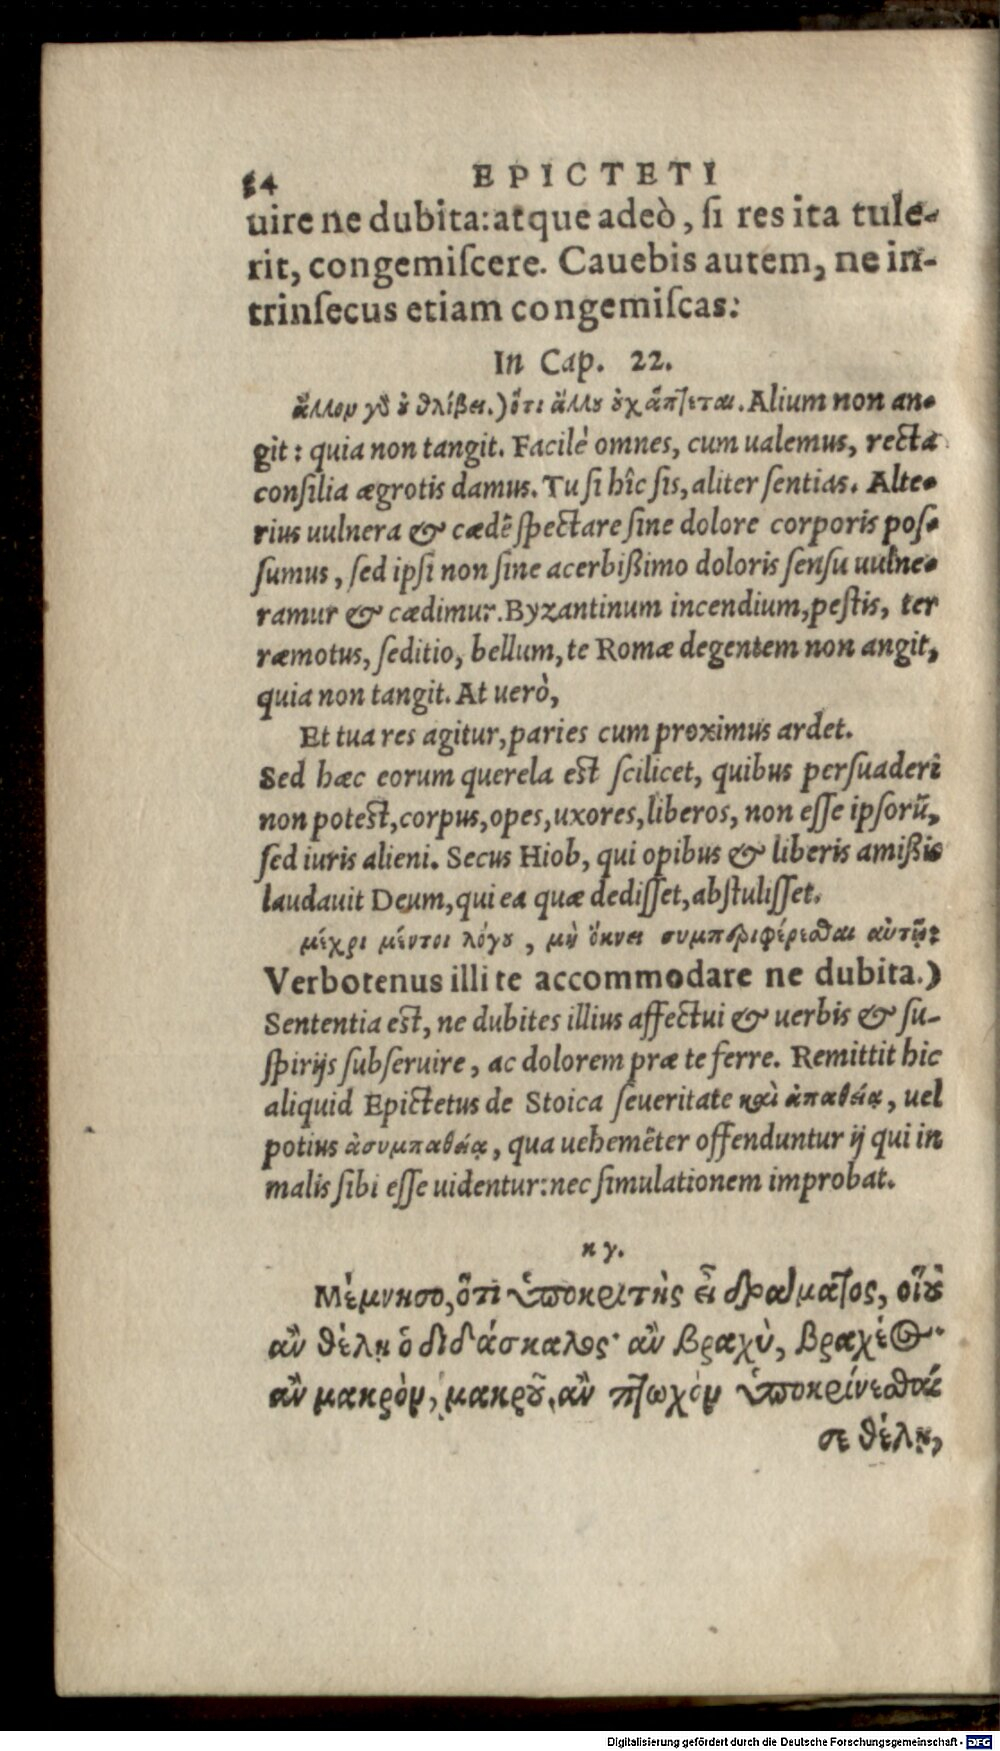 54 EPICTETI
uire ne dubita: atque adeò, ſi res ita tule-
rit, congemiſcere. Cauebis autem, ne in-
trinſecus etiam congemiſcas:
In Cap. 22.
ἄλλον γὸ ὀ θλίβει.) ὅτι ἄλλȣ ȣ̓χ ἅπτεται. Alium non an-
git: quia non tangit. Facilè omnes, cum ualemus, recta
conſilia ægrotis damus. Tu ſi hîc ſis, aliter ſentias. Alte-
rius uulnera & cædẽ ſpectare ſine dolore corporis poſ-
ſumus, ſed ipſi non ſine acerbißimo doloris ſenſu uulne-
ramur & cædimur. Byzantinum incendium, peſtis, ter
ræmotus, ſeditio, bellum, te Romæ degentem non angit,
quia non tangit. At uerò,
Et tua res agitur, paries cum proximus ardet.
Sed hæc eorum querela eſt ſcilicet, quibus perſuaderi
non poteſt, corpus, opes, uxores, liberos, non eſſe ipſorũ,
ſed iuris alieni. Secus Hiob, qui opibus & liberis amißis
laudauit Deum, qui ea quæ dediſſet, abſtuliſſet.
μέχρι μέντοι λόγȣ, μὴ ὄκνει συμπεριφέρεσθαι αὐτῷ:
Verbotenus illi te accommodare ne dubita.)
Sententia eſt, ne dubites illius affectui & uerbis & ſu-
ſpirijs ſubſeruire, ac dolorem præ te ferre. Remittit hic
aliquid Epictetus de Stoica ſeueritate καὶ ἀπαθείᾳ, uel
potius ἀσυμπαθείᾳ, qua uehemẽter offenduntur ij qui in
malis ſibi eſſe uidentur: nec ſimulationem improbat.
κγ.
Μέμνησο, ὅτι ὑποκριτὴς εἶ δράματος, οἵȣ
ἂν θέλῃ ὁ διδάσκαλος· ἂν βραχὺ, βραχέος·
ἂν μακρὸν, μακρȣ͂, ἂν πτωχὸν ὑποκρίνεσθαί
σε θέλῃ,
Digitalisierung gefördert durch die Deutsche Forschungsgemeinschaft - DFG